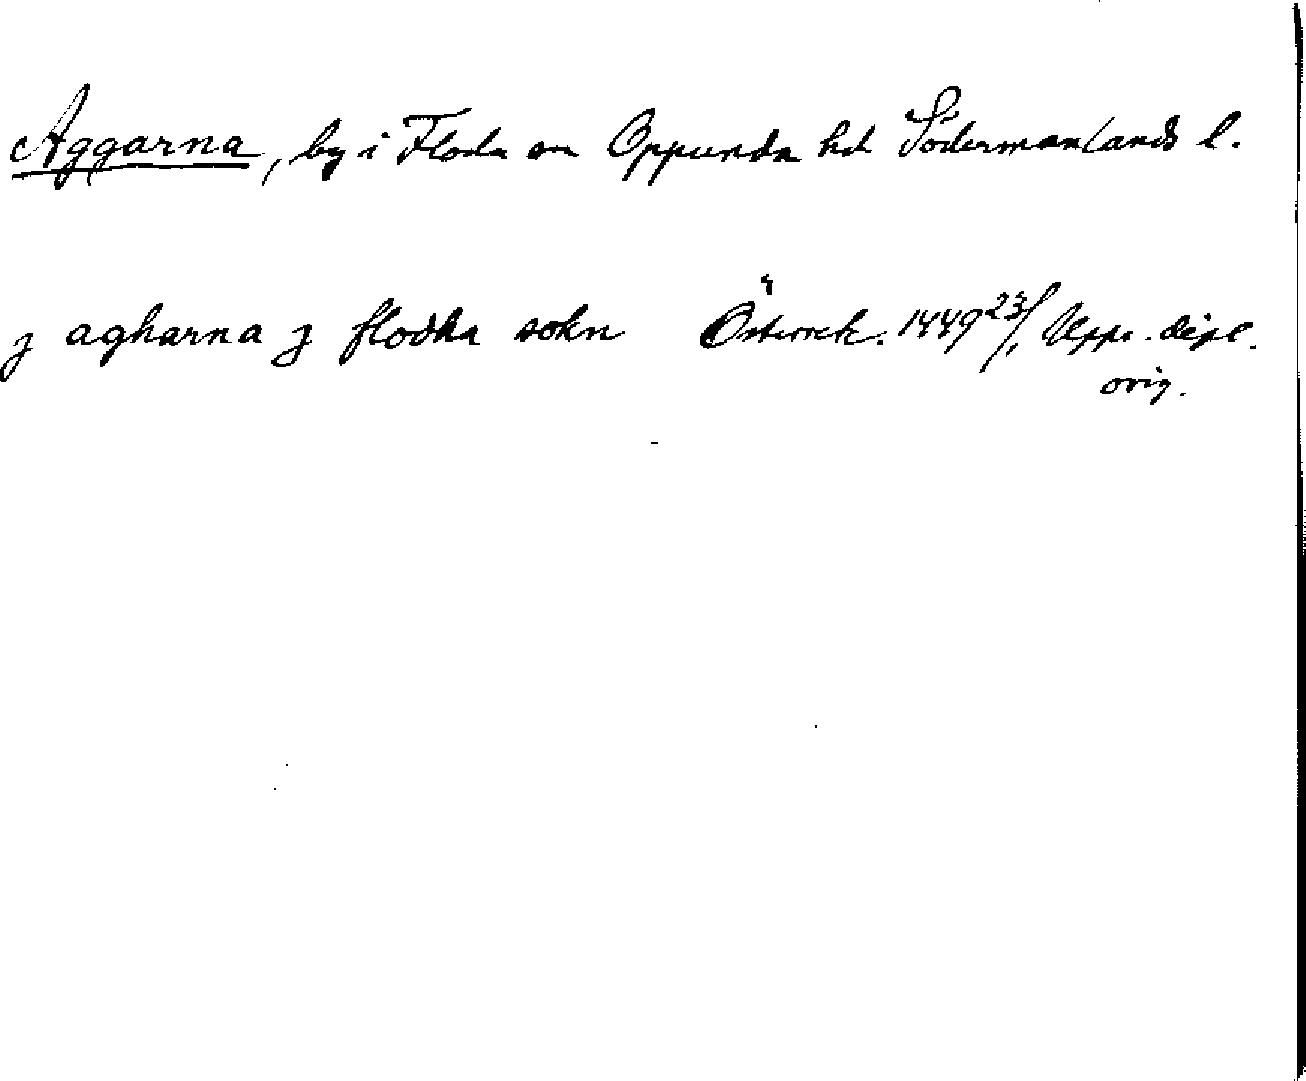 Aggarna, by i Floda sn Oppunda hd Södermanlands l.
j agharna j flodha sokn 1449 23/1 Upps. dipl.
orig.